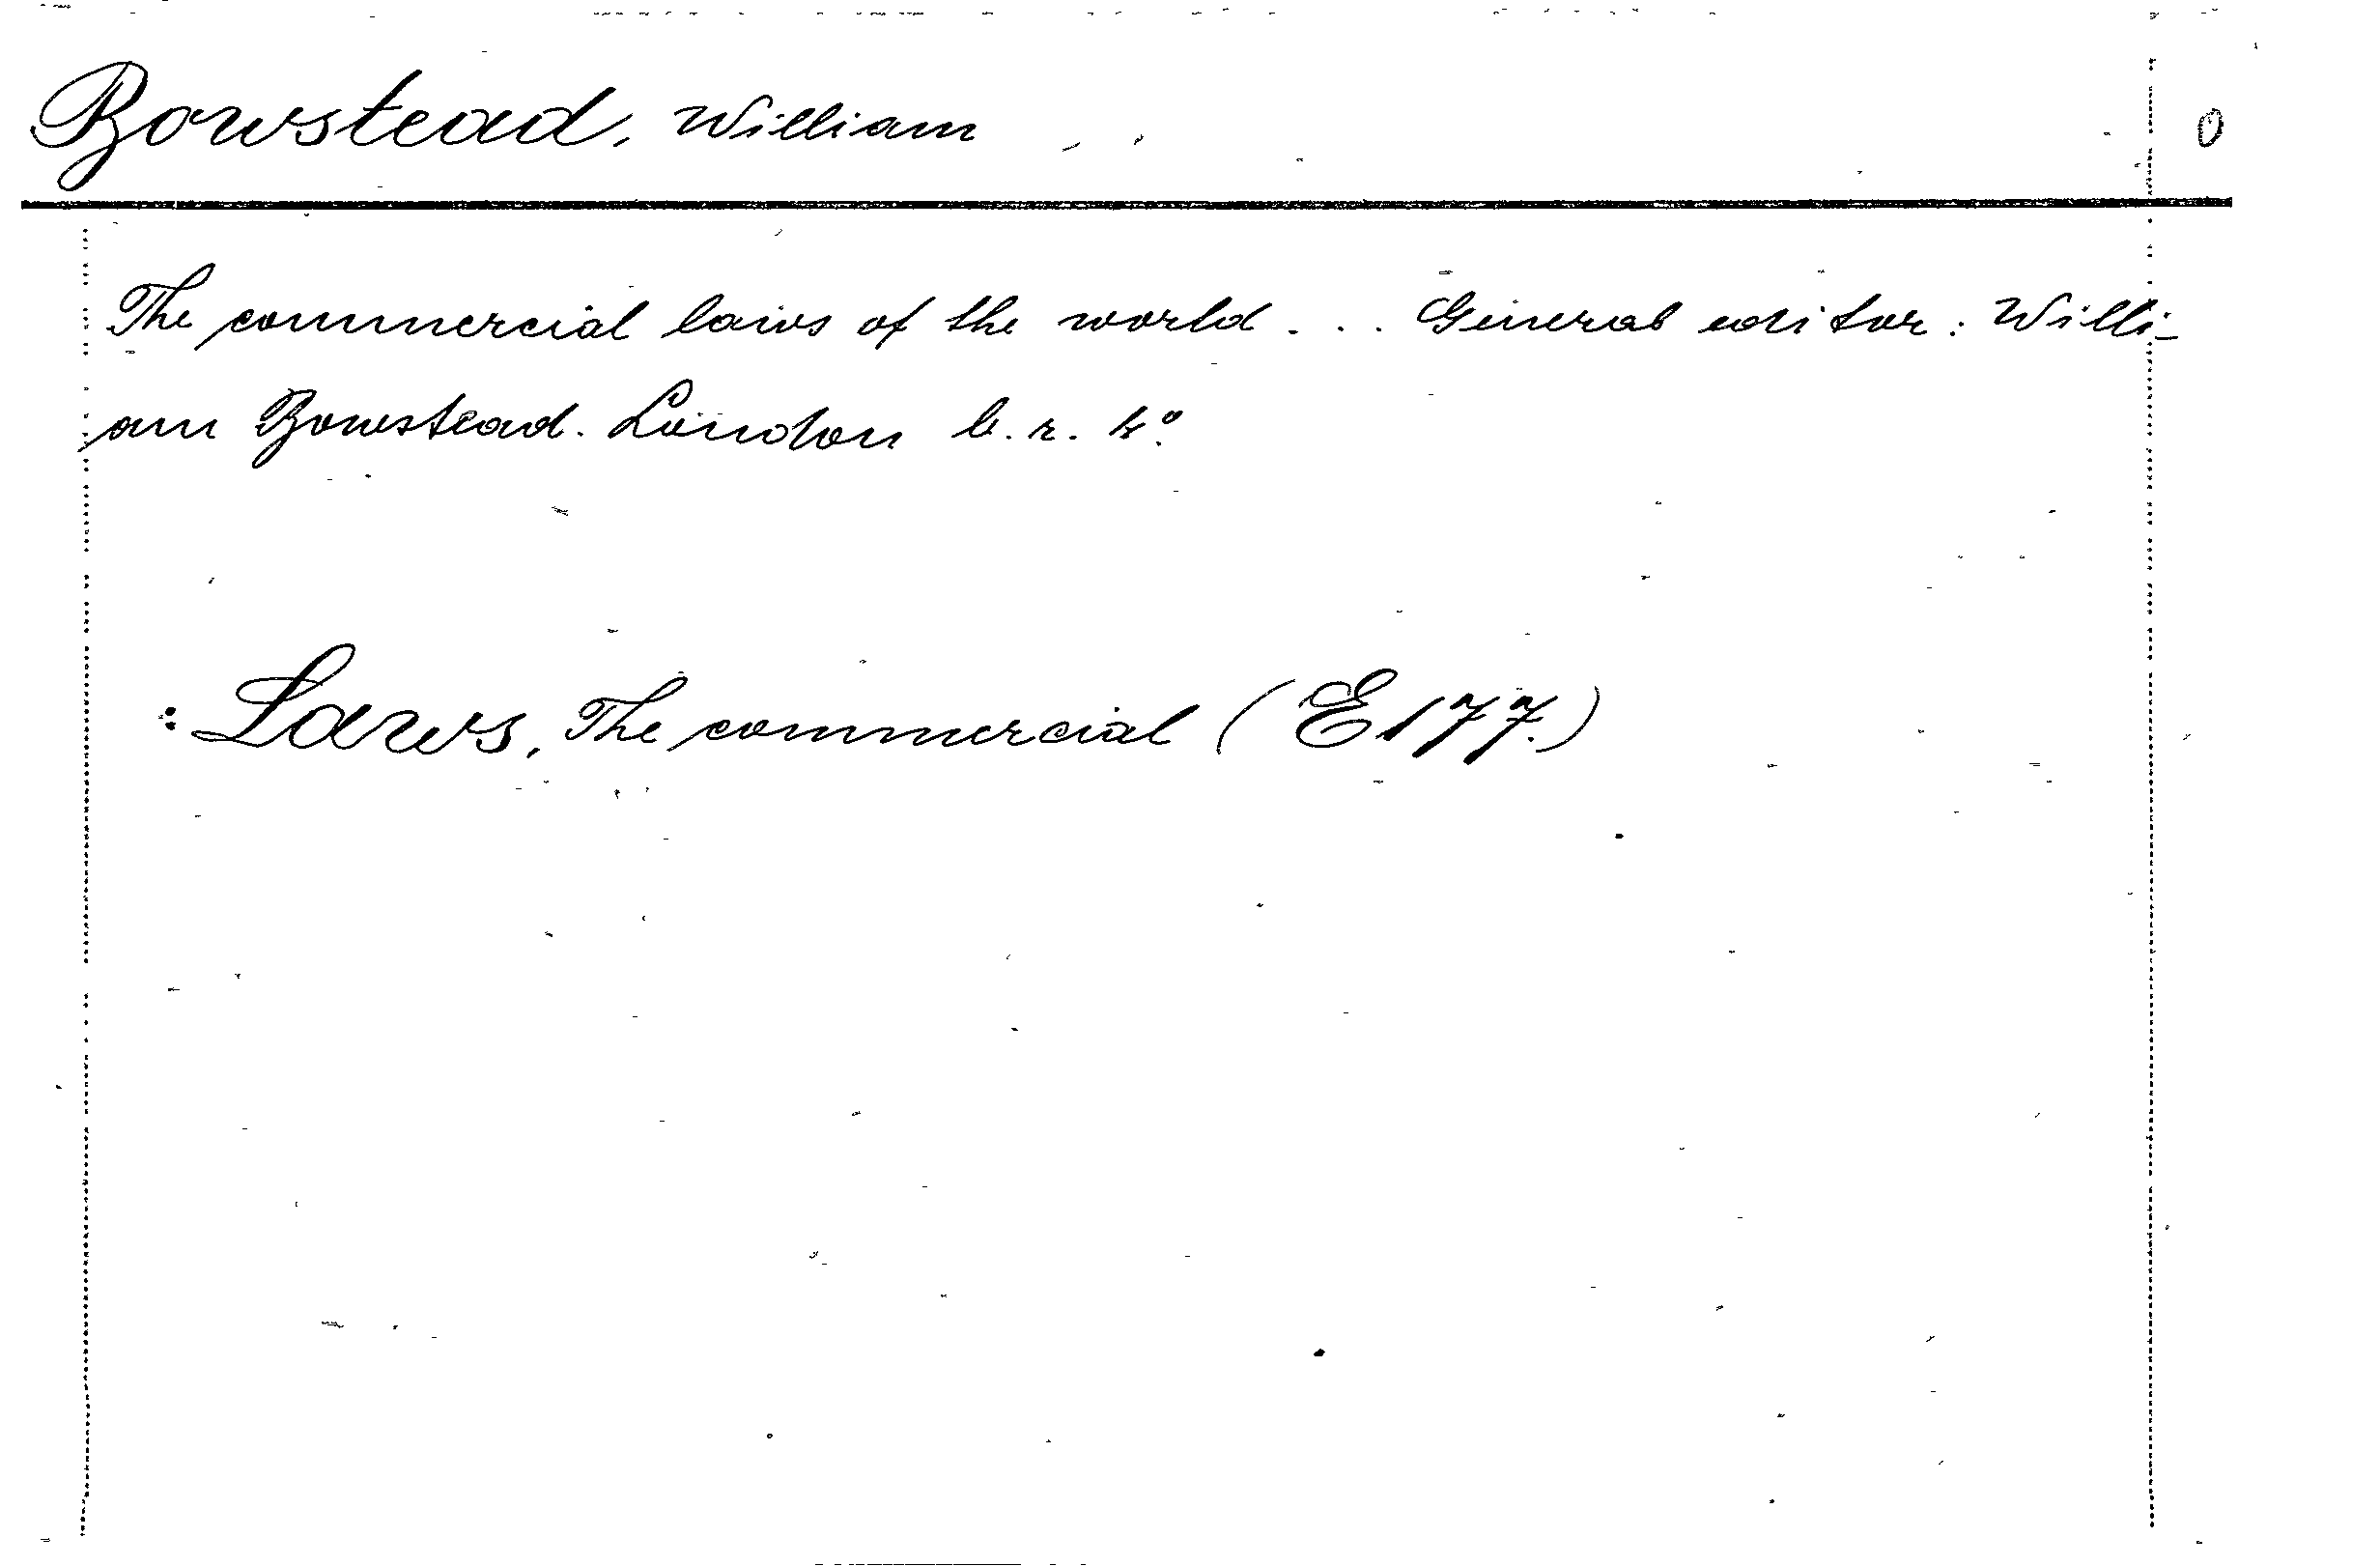 Bowstead, William 0
The commercial laws of the world... General editor: Willi-
am Bowstead. London b. r. 4º.
: Laws, The commercial (E177.)